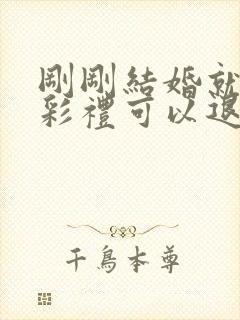 剛剛結婚就
彩禮可以退
千鳥本尊